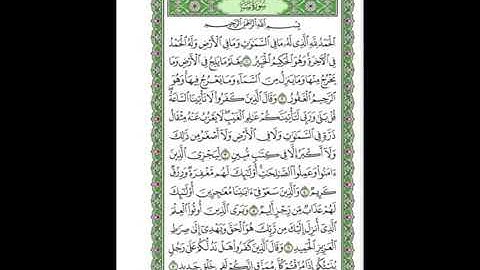 سورة سبإ
بسم الله الرحمن الرحيم
الحمد لله الذي له ما في السموات وما في الأرض وله الحمد
في الآخرة وهو الحكيم الخبير ١ يعلم ما يلج في الأرض وما
يخرج منها وما ينزل من السماء وما يعرج فيها وهو
الرحيم الغفور ٢ وقال الذين كفروا لا تأتينا الساعة
قل بلى وربي لتأتينكم علم الغيب لا يعزب عنه مثقال
ذرة في السموات ولا في الأرض ولا أصغر من ذلك
ولا أكبر إلا في كتب مبين ٣ ليجزي الذين
ءامنوا وعملوا الصلحت أولئك لهم مغفرة ورزق
كريم ٤ والذين سعو في ءايتنا معجزين أولئك
لهم عذاب من رجز أليم ٥ ويرى الذين أوتوا العلم
الذي أنزل إليك من ربك هو الحق ويهدي إلى صرط
العزيز الحميد ٦ وقال الذين كفروا هل ندلكم على رجل
ينبئكم إذا مزقتم كل ممزق إنكم لفي خلق جديد ٧